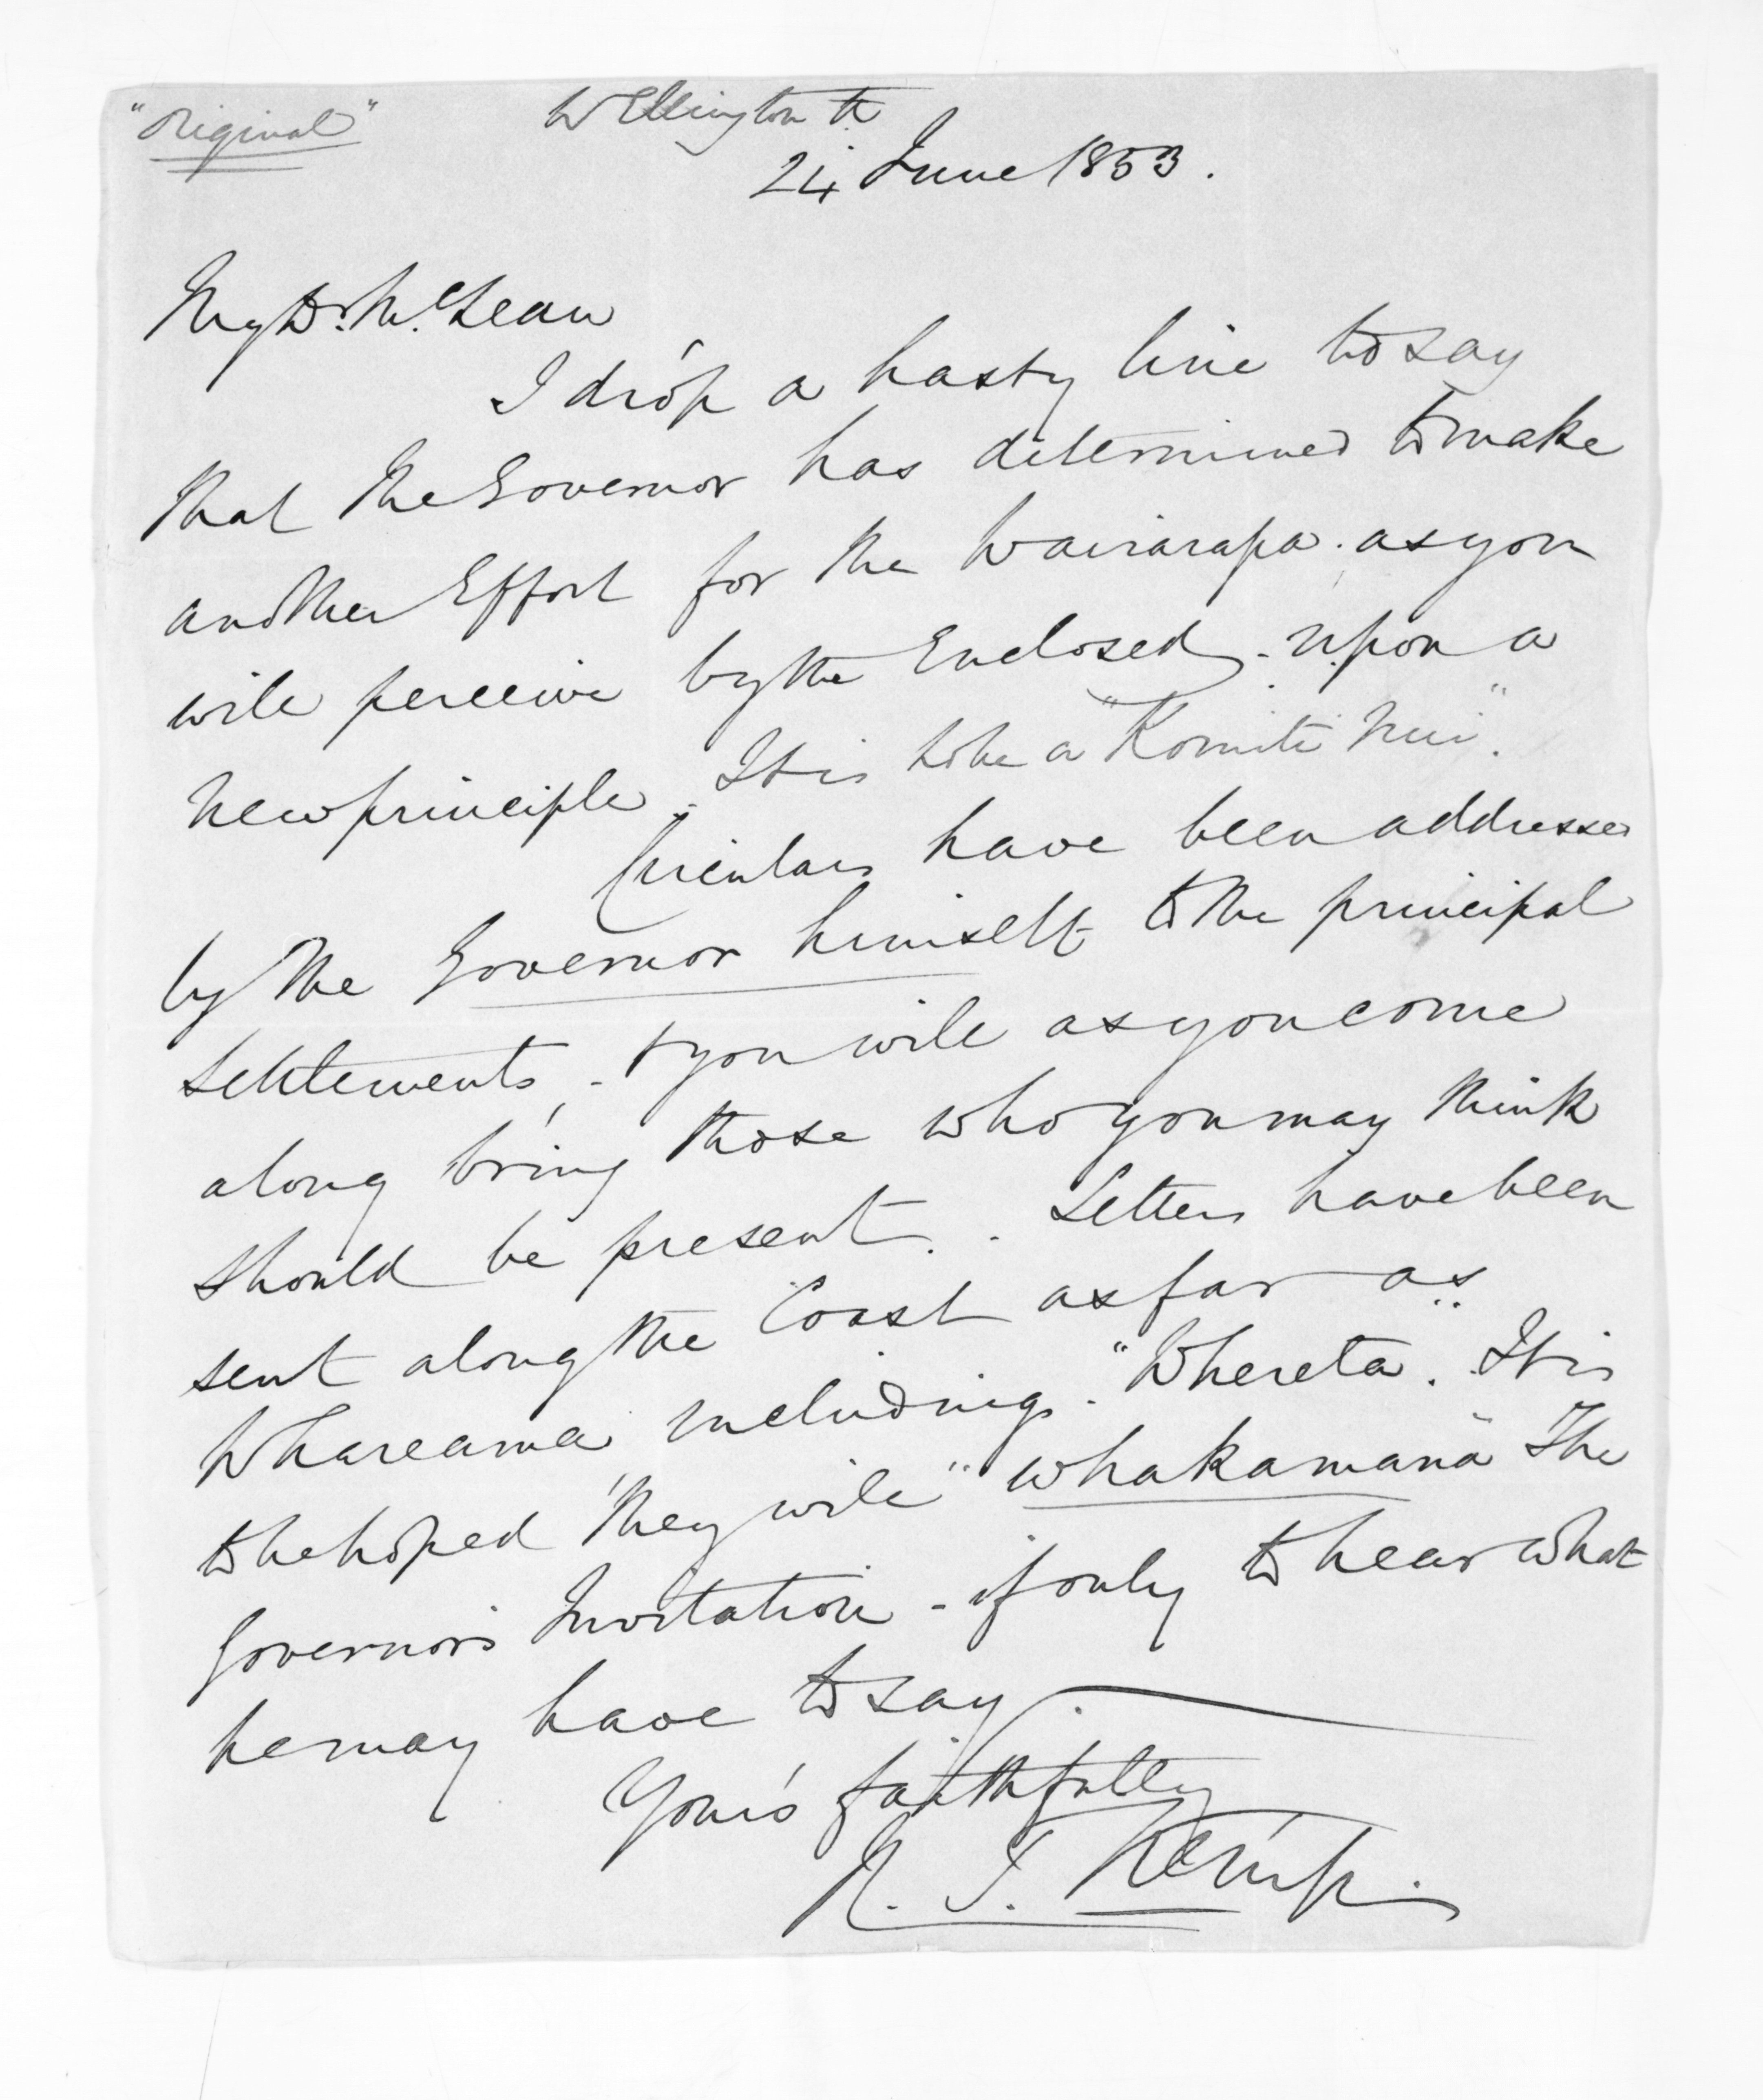 "Original" Wellington
24th June 1853.
My Dr. McLean
I drop a hasty line to say
that the Governor has determined to make
another Effort for the Wairarapa. as you
will perceive by the Enclosed - upon a
New principle. It is to be a "Komiti Nui".
Circulars have been addressed
by the Governor himself to the principal
Settlements, - & you will as you come
along bring those who you may think
should be present. - Letters have been
sent along the Coast as far as
Whareama including - "Whereta. It is
to be hoped they will "whakamana" the
Governor's Invitation - if only to hear what
he may have to say.
Your's faithfully
H. T. Kemp.